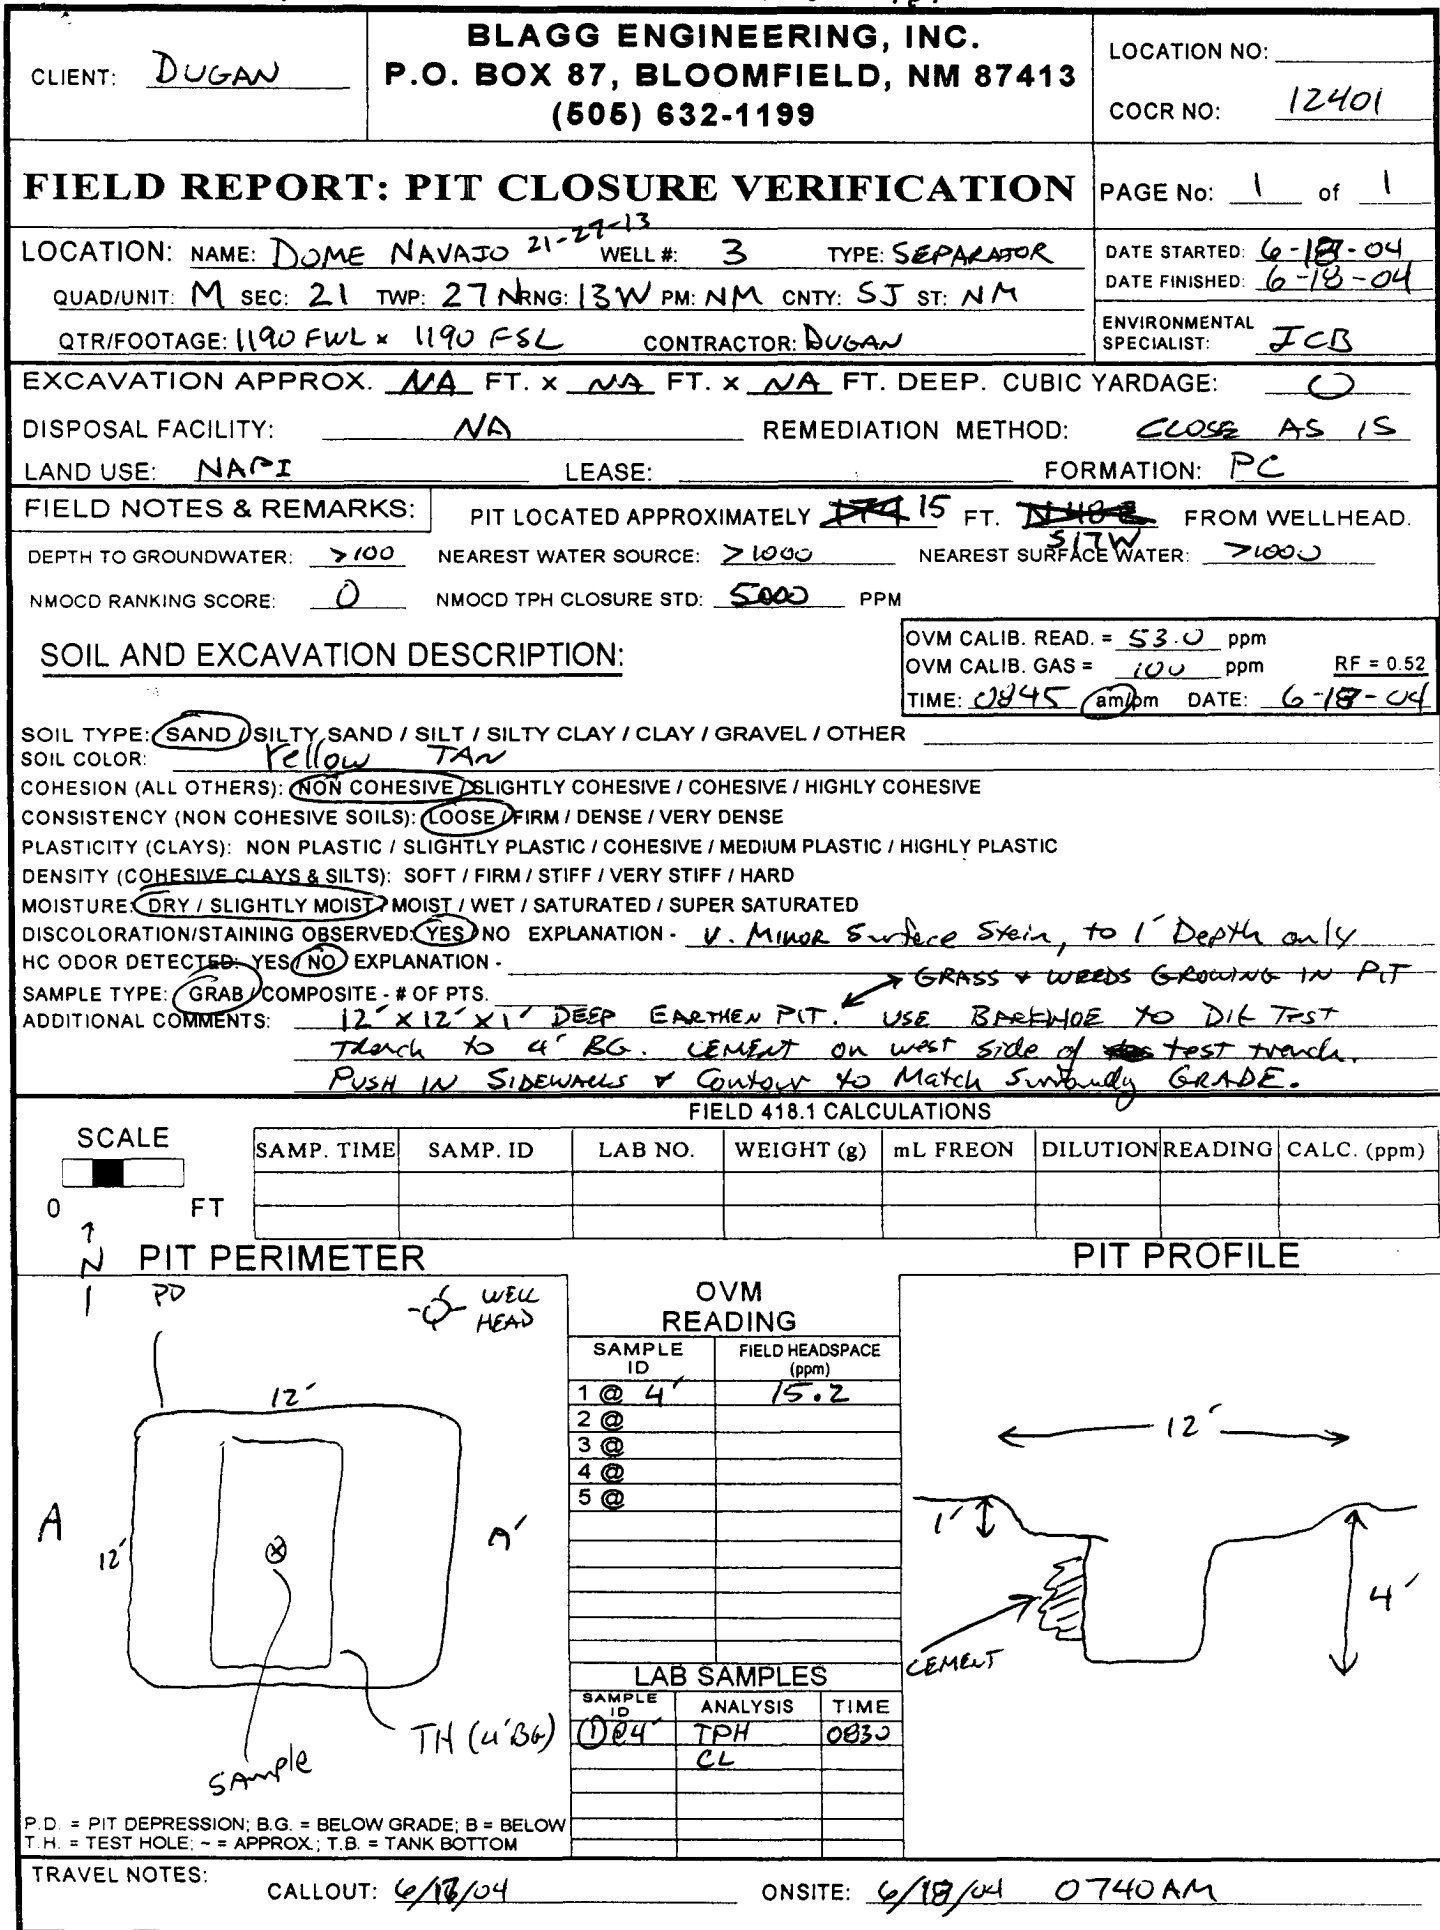 BLAGG ENGINEERING, INC.
P.O. BOX 87, BLOOMFIELD, NM 87413
(505) 632-1199
CLIENT: DUGAN
LOCATION NO:
COCR NO: 12401
FIELD REPORT: PIT CLOSURE VERIFICATION
PAGE No: 1 of 1
LOCATION: NAME: DOME NAVAJO 21-27-13 WELL #: 3 TYPE: SEPARATOR
QUAD/UNIT: M SEC: 21 TWP: 27N RNG: 13W PM: NM CNTY: SJ ST: NM
QTR/FOOTAGE: 1190 FWL x 1190 FSL CONTRACTOR: DUGAN
DATE STARTED: 6-18-04
DATE FINISHED: 6-18-04
ENVIRONMENTAL
SPECIALIST: JCB
EXCAVATION APPROX. NA FT. x NA FT. x NA FT. DEEP. CUBIC YARDAGE: 0
DISPOSAL FACILITY: NA REMEDIATION METHOD: CLOSE AS IS
LAND USE: NAPI LEASE: FORMATION: PC
FIELD NOTES & REMARKS: PIT LOCATED APPROXIMATELY 15 FT. S17W FROM WELLHEAD.
DEPTH TO GROUNDWATER: >100 NEAREST WATER SOURCE: >1000 NEAREST SURFACE WATER: >1000
NMOCD RANKING SCORE: 0 NMOCD TPH CLOSURE STD: 5000 PPM
SOIL AND EXCAVATION DESCRIPTION:
OVM CALIB. READ. = 53.0 ppm
OVM CALIB. GAS = 100 ppm RF = 0.52
TIME: 0845 am/pm DATE: 6-18-04
SOIL TYPE: SAND / SILTY SAND / SILT / SILTY CLAY / CLAY / GRAVEL / OTHER
SOIL COLOR: Yellow TAN
COHESION (ALL OTHERS): NON COHESIVE / SLIGHTLY COHESIVE / COHESIVE / HIGHLY COHESIVE
CONSISTENCY (NON COHESIVE SOILS): LOOSE / FIRM / DENSE / VERY DENSE
PLASTICITY (CLAYS): NON PLASTIC / SLIGHTLY PLASTIC / COHESIVE / MEDIUM PLASTIC / HIGHLY PLASTIC
DENSITY (COHESIVE CLAYS & SILTS): SOFT / FIRM / STIFF / VERY STIFF / HARD
MOISTURE: DRY / SLIGHTLY MOIST / MOIST / WET / SATURATED / SUPER SATURATED
DISCOLORATION/STAINING OBSERVED: YES / NO EXPLANATION - V. MINOR Surface Stain, to 1' Depth only
HC ODOR DETECTED: YES / NO EXPLANATION -
GRASS & WEEDS GROWING IN PIT
SAMPLE TYPE: GRAB / COMPOSITE - # OF PTS.
ADDITIONAL COMMENTS: 12' X 12' X 1' DEEP EARTHEN PIT. USE BACKHOE TO DIG TEST
Trench to 4' BG. CEMENT on west side of test trench.
PUSH IN SIDEWALLS & Contour to Match GRADE.
FIELD 418.1 CALCULATIONS
SCALE
0 FT
SAMP. TIME SAMP. ID LAB NO. WEIGHT (g) mL FREON DILUTION READING CALC. (ppm)
N
PIT PERIMETER
PD
WELL
HEAD
12'
A
12'
A'
TH (4' BG)
Sample
P.D. = PIT DEPRESSION; B.G. = BELOW GRADE; B = BELOW
T.H. = TEST HOLE; ~ = APPROX.; T.B. = TANK BOTTOM
OVM
READING
SAMPLE ID FIELD HEADSPACE (ppm)
1 @ 4' 15.2
2 @
3 @
4 @
5 @
LAB SAMPLES
SAMPLE ID ANALYSIS TIME
①@4' TPH 0830
CL
PIT PROFILE
12'
1'
4'
CEMENT
TRAVEL NOTES: CALLOUT: 6/18/04 ONSITE: 6/18/04 0740 AM